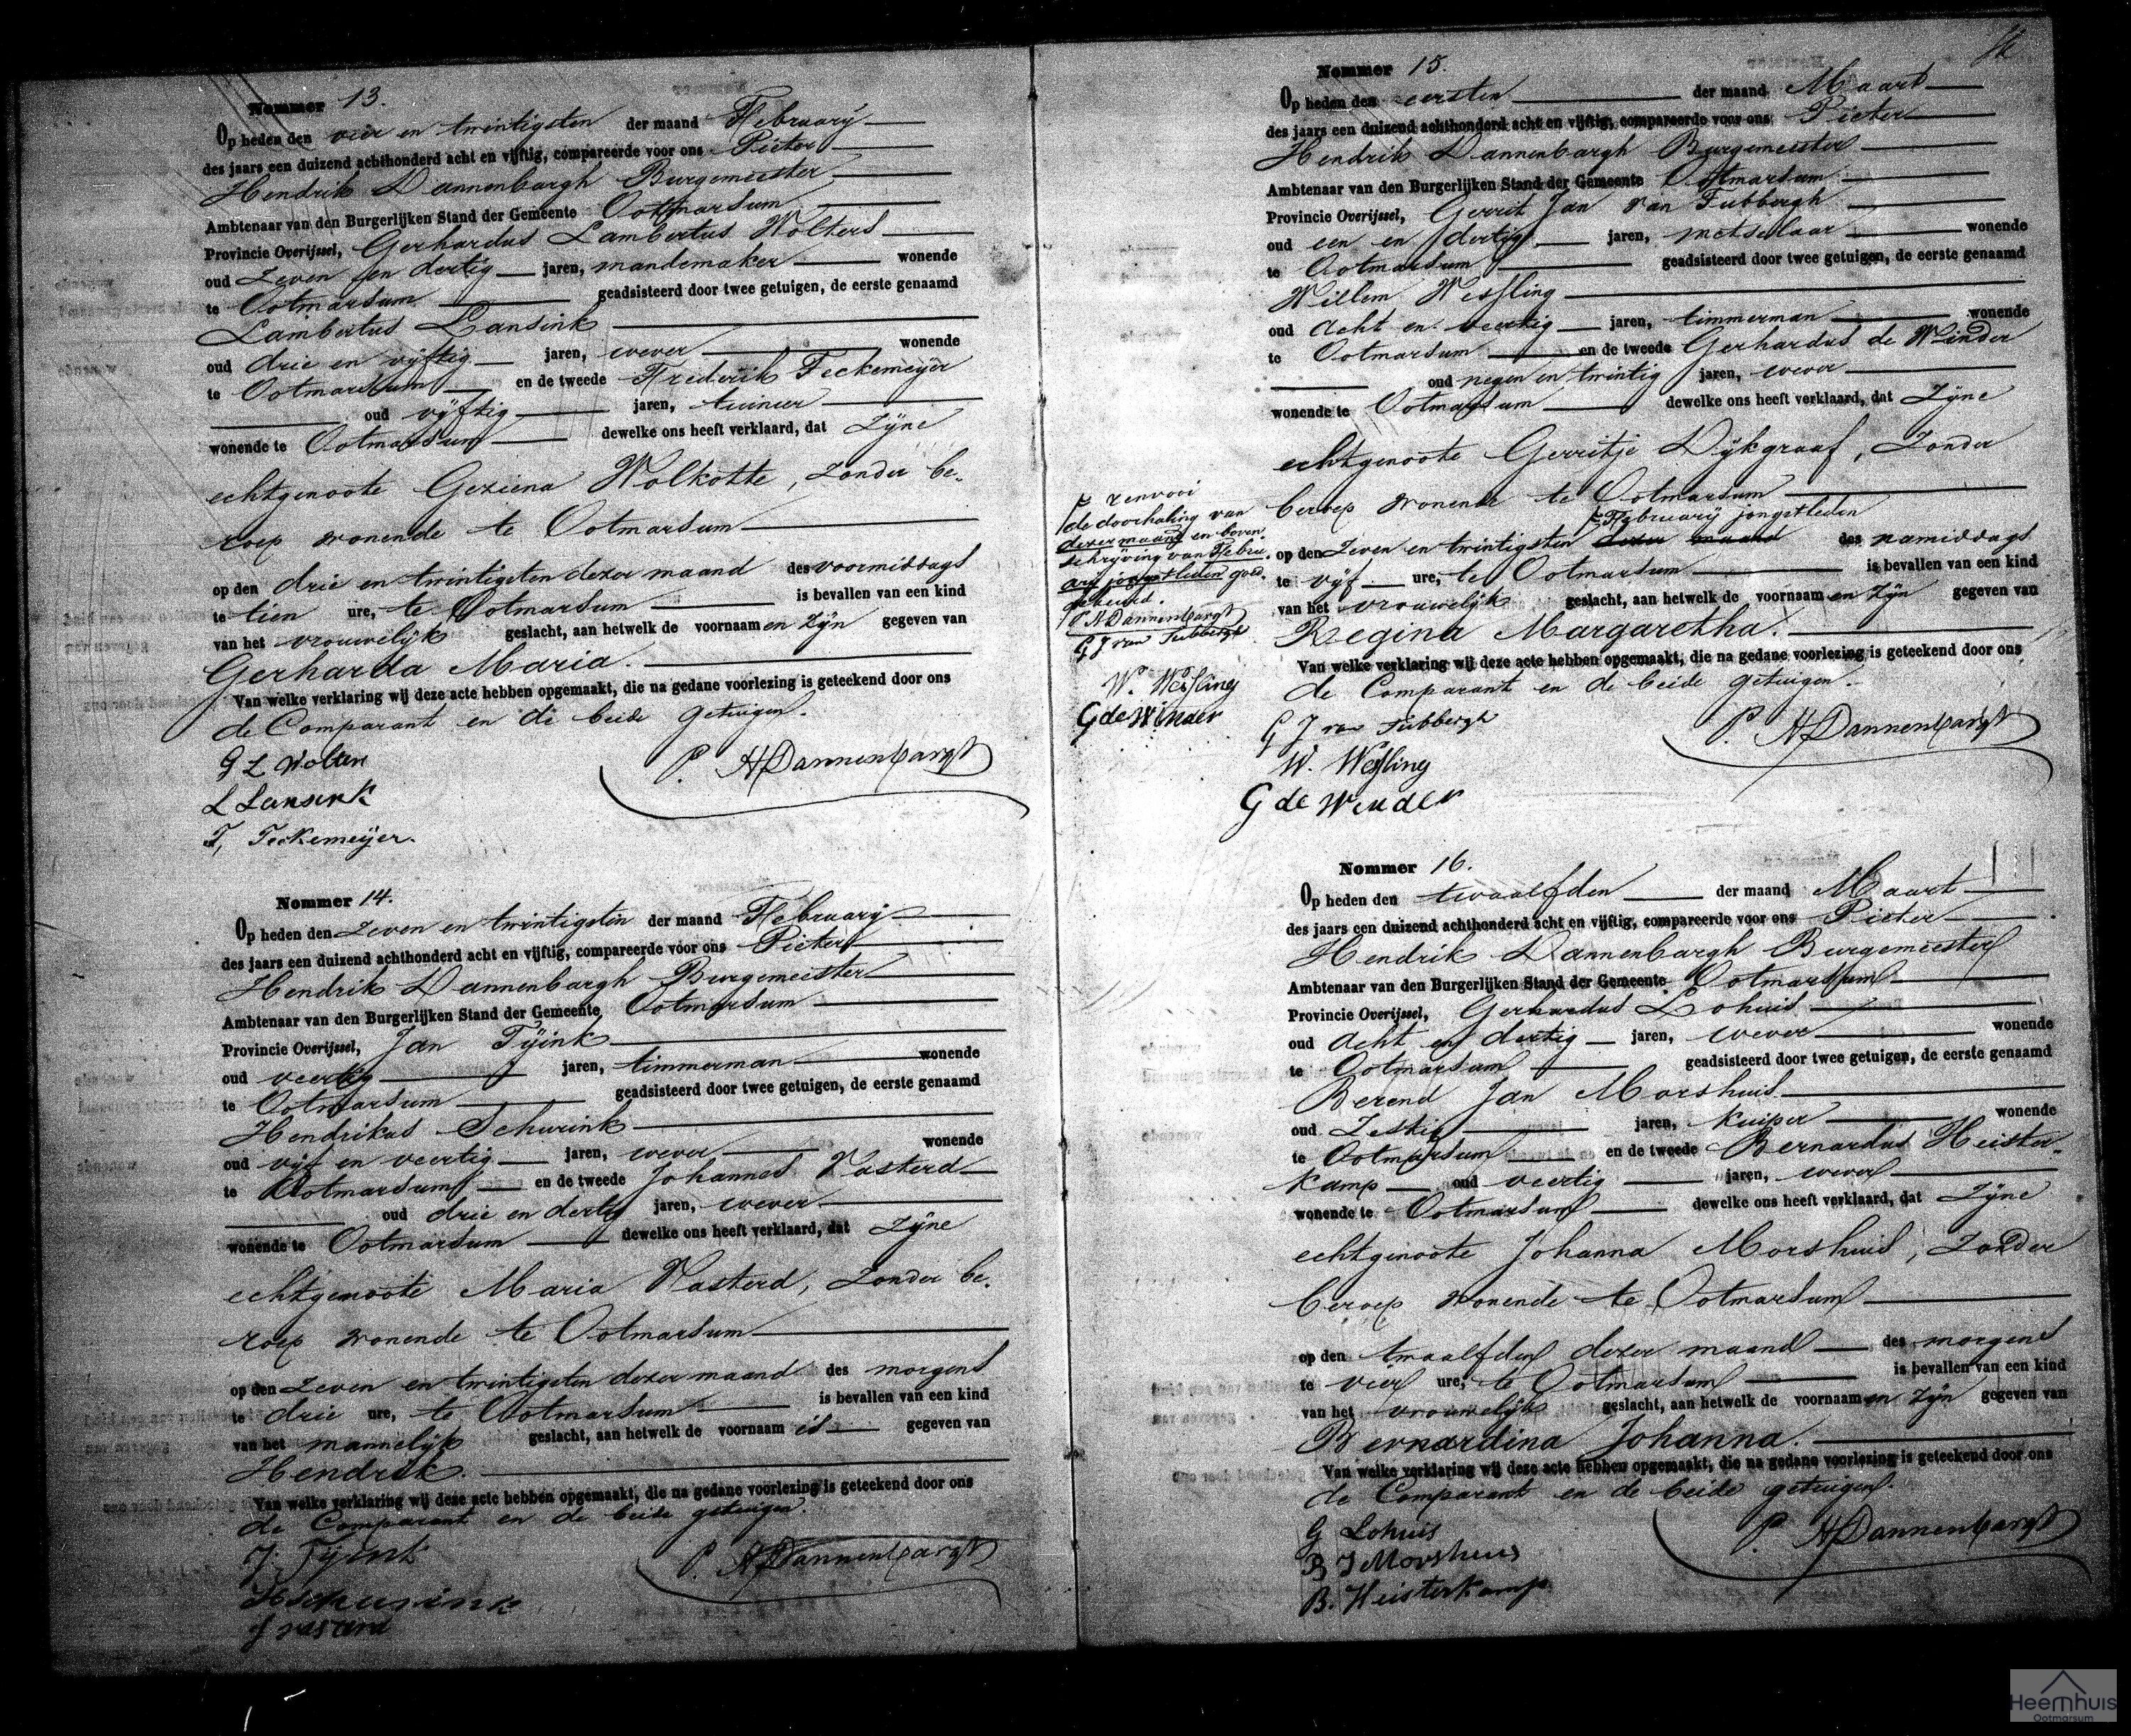 Nommer 13.
Op heden den vier en twintigsten der maand February
des jaars een duizend achthonderd acht en vijftig, compareerde voor ons Pieter
Hendrik Dannenbargh Burgemeester
Ambtenaar van den Burgerlijken Stand der Gemeente Ootmarsum
Provincie Overijssel, Gerhardus Lambertus Wolters
oud zeven en dertig jaren, mandemaker wonende
te Ootmarsum geadsisteerd door twee getuigen, de eerste genaamd
Lambertus Lansink
oud drie en vijftig jaren, wever wonende
te Ootmarsum en de tweede Frederik Teckemeijer
oud vijftig jaren, tuinier
wonende te Ootmarsum dewelke ons heeft verklaard, dat zijne
echtgenoote Geziena Wolkotte, zonder be-
roep wonende te Ootmarsum
op den drie en twintigsten dezer maand des voormiddags
te tien ure, te Ootmarsum is bevallen van een kind
van het vrouwelijk geslacht, aan hetwelk de voornaamen zijn gegeven van
Gerharda Maria.
Van welke verklaring wij deze acte hebben opgemaakt, die na gedane voorlezing is geteekend door ons
de Comparant en de beide getuigen.
G L Wolters
P. H Dannenbargh
L Lansink
F. Teckemeijer.
Nommer 14.
Op heden den zeven en twintigsten der maand February
des jaars een duizend achthonderd acht en vijftig, compareerde voor ons Pieter
Hendrik Dannenbargh Burgemeester
Ambtenaar van den Burgerlijken Stand der Gemeente Ootmarsum
Provincie Overijssel, Jan Tijink
oud veertig jaren, timmerman wonende
te Ootmarsum geadsisteerd door twee getuigen, de eerste genaamd
Hendrikus Schurink
oud vijf en veertig jaren, wever wonende
te Ootmarsum en de tweede Johannes Vasterd
oud drie en dertig jaren, wever
wonende te Ootmarsum dewelke ons heeft verklaard, dat zijne
echtgenoote Maria Vasterd, zonder be-
roep wonende te Ootmarsum
op den zeven en twintigsten dezer maand des morgens
te drie ure, te Ootmarsum is bevallen van een kind
van het mannelijk geslacht, aan hetwelk de voornaam is gegeven van
Hendrik.
Van welke verklaring wij deze acte hebben opgemaakt, die na gedane voorlezing is geteekend door ons
de Comparant en de beide getuigen.
J. Tijink
P. H Dannenbargh
H Schurink
J Vasterd
Nommer 15.
Op heden den eersten der maand Maart
des jaars een duizend achthonderd acht en vijftig, compareerde voor ons Pieter
Hendrik Dannenbargh Burgemeester
Ambtenaar van den Burgerlijken Stand der Gemeente Ootmarsum
Provincie Overijssel, Gerrit Jan van Tubbergh
oud een en dertig jaren, metselaar wonende
te Ootmarsum geadsisteerd door twee getuigen, de eerste genaamd
Willem Wesseling
oud acht en veertig jaren, timmerman wonende
te Ootmarsum en de tweede Gerhardus de Winder
oud negen en twintig jaren, wever
wonende te Ootmarsum dewelke ons heeft verklaard, dat zijne
echtgenoote Gerritje Dijkgraaf, zonder
beroep wonende te Ootmarsum
February jongstleden
op den zeven en twintigsten dezer maand des namiddags
te vijf ure, te Ootmarsum is bevallen van een kind
van het vrouwelijk geslacht, aan hetwelk de voornaamen zijn gegeven van
Regina Margaretha.
Van welke verklaring wij deze acte hebben opgemaakt, die na gedane voorlezing is geteekend door ons
de Comparant en de beide getuigen.
G J van Tubbergh
P. H Dannenbargh
W. Wesseling
G de Winder
renvooi
de doorhaling van
dezer maand en boven-
schrijving van Febru-
arij jongstleden goed-
gekeurd.
P H Dannenbargh
G J van Tubbergh
W. Wesseling
G de Winder
Nommer 16.
Op heden den twaalfden der maand Maart
des jaars een duizend achthonderd acht en vijftig, compareerde voor ons Pieter
Hendrik Dannenbargh Burgemeester
Ambtenaar van den Burgerlijken Stand der Gemeente Ootmarsum
Provincie Overijssel, Gerhardus Lohuis
oud acht en dertig jaren, wever wonende
te Ootmarsum geadsisteerd door twee getuigen, de eerste genaamd
Berend Jan Morshuis
oud zestig jaren, kuiper wonende
te Ootmarsum en de tweede Bernardus Heister-
kamp oud veertig jaren, wever
wonende te Ootmarsum dewelke ons heeft verklaard, dat zijne
echtgenoote Johanna Morshuis, zonder
beroep wonende te Ootmarsum
op den twaalfden dezer maand des morgens
te vier ure, te Ootmarsum is bevallen van een kind
van het vrouwelijk geslacht, aan hetwelk de voornaamen zijn gegeven van
Bernardina Johanna.
Van welke verklaring wij deze acte hebben opgemaakt, die na gedane voorlezing is geteekend door ons
de Comparant en de beide getuigen.
G Lohuis
P. H Dannenbargh
B J Morshuis
B. Heisterkamp
Heemhuis
Ootmarsum